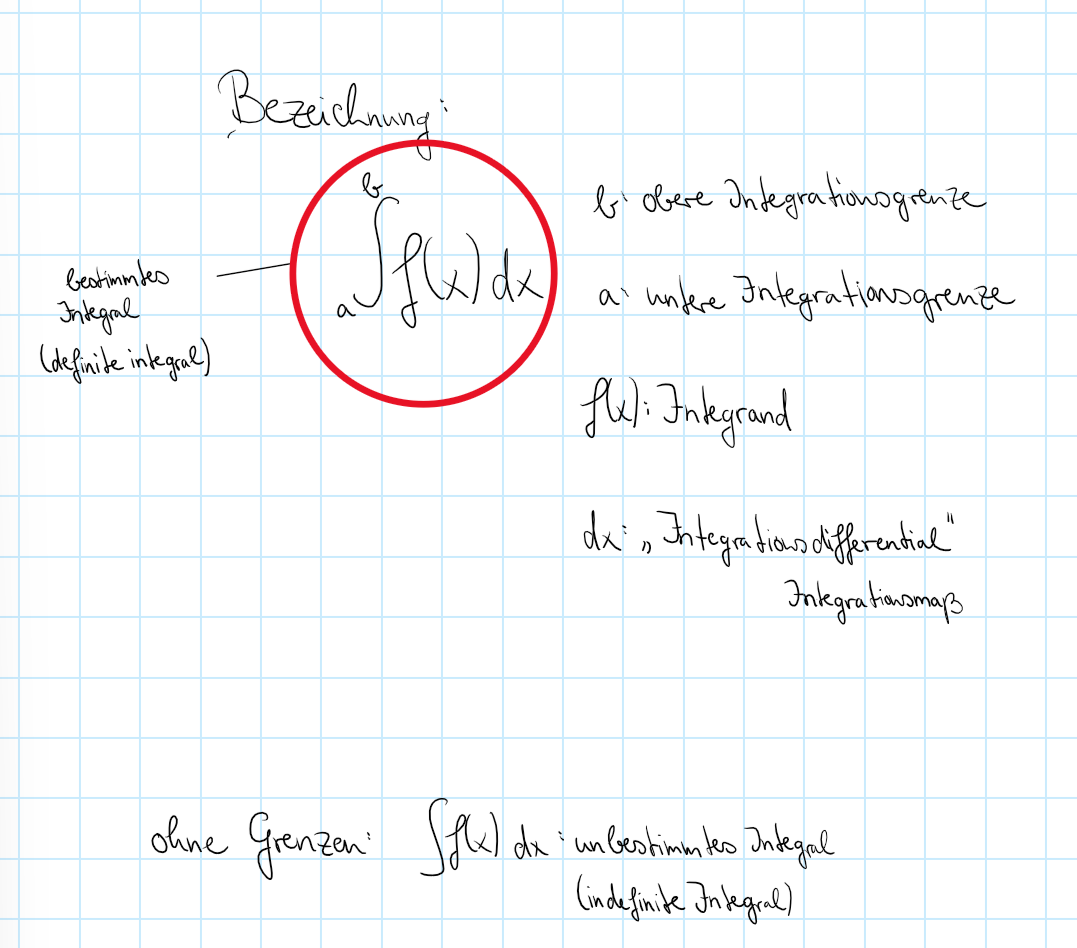 Bezeichnung:
b
∫ f(x) dx
a
bestimmtes
Integral
(definite integral)
b: obere Integrationsgrenze
a: untere Integrationsgrenze
f(x): Integrand
dx: „Integrationsdifferential"
Integrationsmaß
ohne Grenzen: ∫f(x) dx: unbestimmtes Integral
(indefinite Integral)